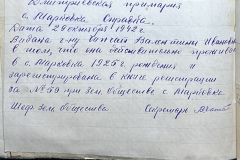 Дмитриевская примария
с. Марковка Справка.
Дана 29 октября 1942 г.
Выдана г-ну Валентины Ивановне
в том, что она действительно проживает
в с. Марковка 1925 г. рождения и
зарегистрирована в книге регистрации
за № 50 при Зем. обществе с. Марковка
Шеф Зем общества Секретарь